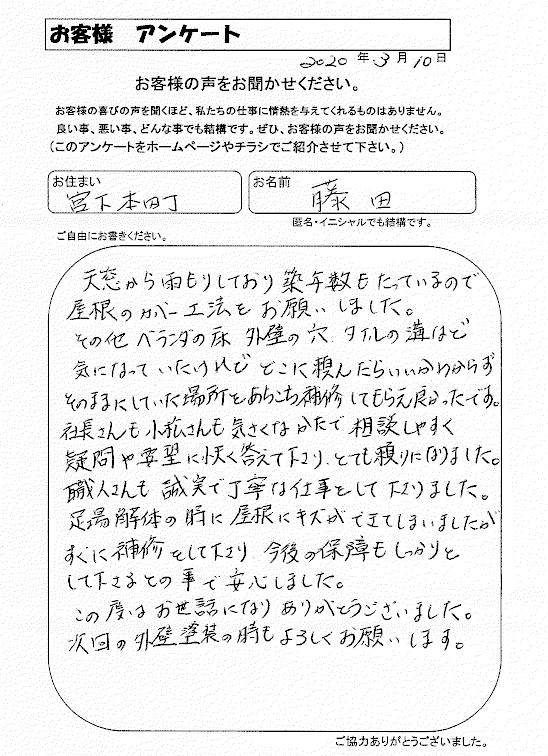 お客様 アンケート
2020 年 3 月 10 日
お客様の声をお聞かせください。
お客様の喜びの声を聞くほど、私たちの仕事に情熱を与えてくれるものはありません。
良い事、悪い事、どんな事でも結構です。ぜひ、お客様の声をお聞かせください。
(このアンケートをホームページやチラシでご紹介させて下さい。)
お住まい 宮下本町
お名前 藤田
匿名・イニシャルでも結構です。
ご自由にお書きください。
天窓から雨もりしており築年数もたっているので
屋根のカバー工法をお願いしました。
その他 ベランダの床 外壁の穴、タイルの溝など
気になっていたけれど どこに頼んだらいいかわからず
そのままにしていた場所をあちこち補修してもらえ良かったです。
社長さんも小松さんも気さくなかたで 相談しやすく
疑問や要望に快く答えて下さり、とても頼りになりました。
職人さんも 誠実で丁寧な仕事をして下さりました。
足場解体の時に屋根にキズができてしまいましたが
すぐに補修をして下さり 今後の保障もしっかりと
して下さるとの事で安心しました。
この度はお世話になりありがとうございました。
次回の外壁塗装の時もよろしくお願いします。
ご協力ありがとうございました。